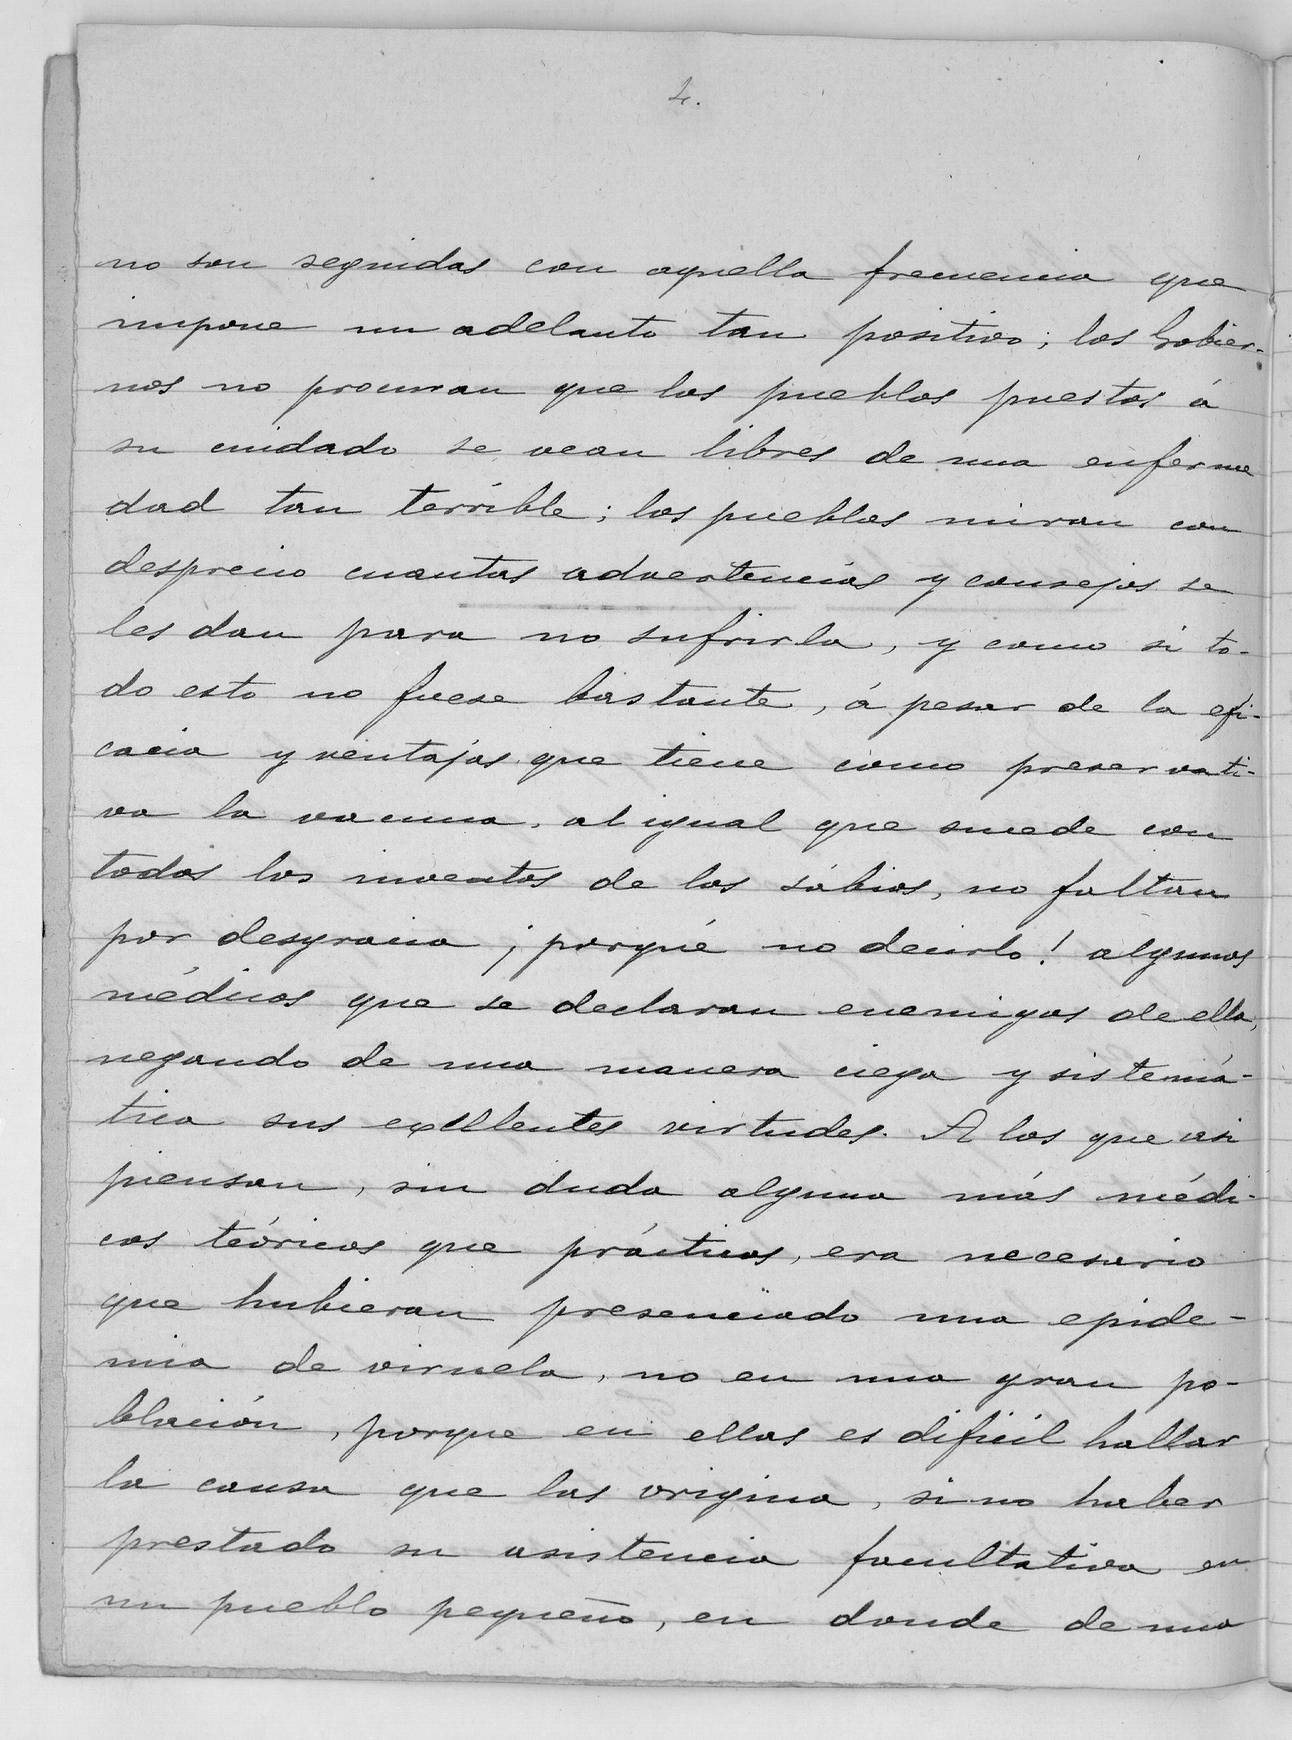 4.
no son seguidas con aquella frecuencia que
impone un adelanto tan positivo; los Gobier-
nos no procuran que los pueblos puestos á
su cuidado se vean libres de una enferme
dad tan terrible; los pueblos miran con
desprecio cuantas advertencias y consejos se
les dan para no sufrirla, y como si to-
do esto no fuese bastante, á pesar de la efi-
cacia y ventajas que tiene como preservati-
va la vacuna, al igual que sucede con
todos los inventos de los sábios, no faltan
por desgracia ¡porqué no decirlo! algunos
médicos que se declaran enemigos de ella,
negando de una manera ciega y sistemá-
tica sus exellentes virtudes. A los que asi
piensan, sin duda alguna más médi-
cos teóricos que prácticos, era necesario
que hubieran presenciado una epide-
mia de viruela, no en una gran po-
blación, porque en ellas es dificil hallar
la causa que las origina, si no haber
prestado su asistencia facultativa en
un pueblo pequeño, en donde de una